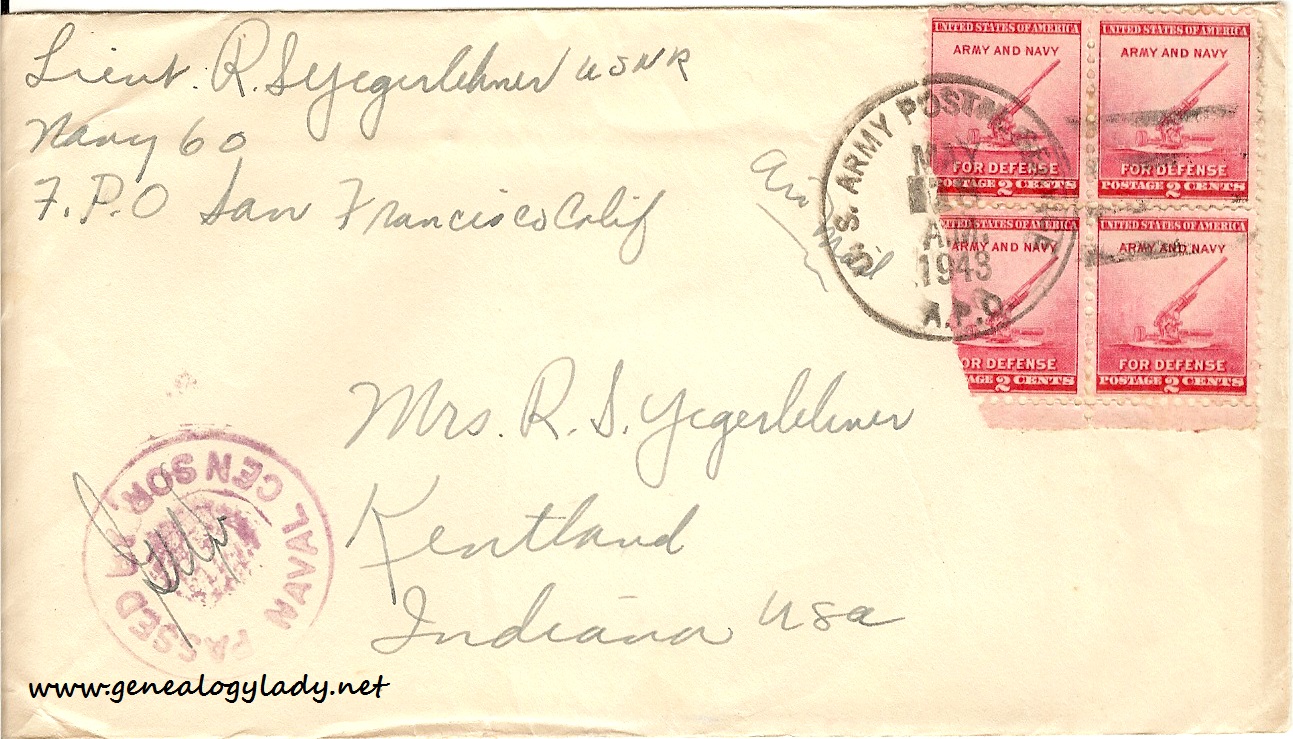 Lieut. R. S Yegerlehner USNR
Navy 60
F.P.O San Francisco Calif
Air Mail
UNITED STATES OF AMERICA
ARMY AND NAVY
FOR DEFENSE
POSTAGE 2 CENTS
UNITED STATES OF AMERICA
ARMY AND NAVY
FOR DEFENSE
POSTAGE 2 CENTS
UNITED STATES OF AMERICA
ARMY AND NAVY
OR DEFENSE
AGE 2 CENTS
UNITED STATES OF AMERICA
ARMY AND NAVY
FOR DEFENSE
POSTAGE 2 CENTS
U.S. ARMY POSTAL SERVICE
MAY
A.M.
1943
A.P.O.
Mrs. R. S. Yegerlehner
Kentland
Indiana USA
PASSED
NAVAL CENSOR
www.genealogylady.net